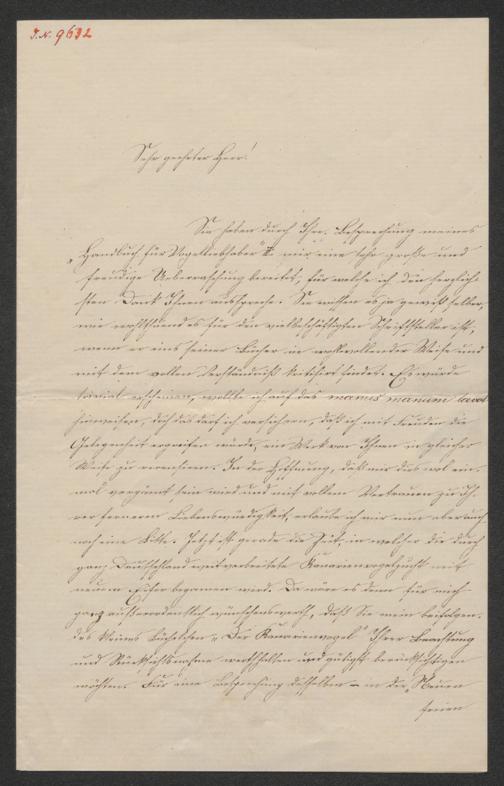 J.N. 9632
Sehr geehrter Herr!
Sie haben durch Ihre Besprechung meines
„Handbuch für Vogelliebhaber" I mir eine sehr große und
freudige Ueberraschung bereitet, für welche ich den herzlich-
sten Dank Ihnen ausspreche. Sie wissen es ja gewiß selber,
wie wohlthuend es für den vielbeschäftigten Schriftsteller ist,
wenn er eins seiner Bücher in wohlwollender Weise und
mit dem vollen Verständniß kritisirt findet. Es würde
trivial erscheinen, wollte ich auf das manus manum lavat
hinweisen, doch das darf ich versichern, daß ich mit Freuden die
Gelegenheit ergreifen würde, ein Werk von Ihnen in gleicher
Weise zu recensiren. In der Hoffnung, daß mir dies wol ein-
mal vergönnt sein wird und mit vollem Vertrauen zu Ih-
rer ferneren Liebenswürdigkeit, erlaube ich mir nun aber auch
noch eine Bitte. Jetzt ist gerade die Zeit, in welcher die durch
ganz Deutschland weitverbreitete Kanarienvogelzucht mit
neuem Eifer begonnen wird. Da wäre es denn für mich
ganz außerordentlich wünschenswerth, daß Sie mein beifolgen-
des kleines Büchelchen „Der Kanarienvogel" Ihrer Beachtung
und Rücksichtsnahme werthhalten und gütigst berücksichtigen
möchten. Für eine Besprechung desselben – in der „Neuen
freien